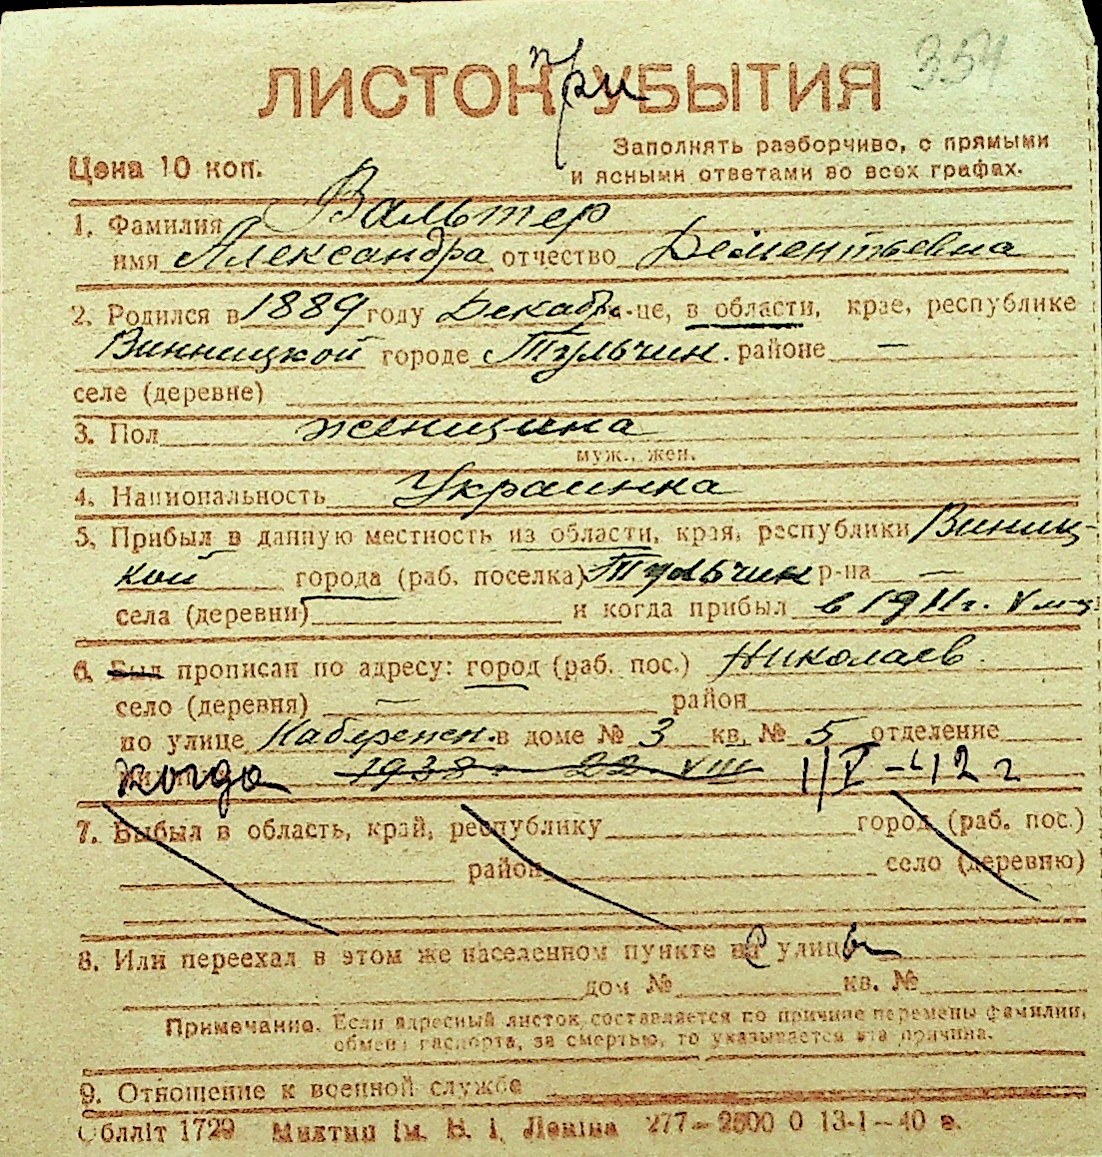 354
ЛИСТОК при УБЫТИЯ
Цена 10 коп.
Заполнять разборчиво, с прямыми
и ясными ответами во всех графах.
1. Фамилия Вальтер
имя Александра отчество Дементьевна
2. Родился в 1889 году Декабр -це, в области, крае, республике
Винницкой городе Тульчин. районе —
селе (деревне)
3. Пол женщина
муж., жен.
4. Национальность Украинка
5. Прибыл в данную местность из области, края, республики Винниц-
кой города (раб. поселка) Тульчин р-на —
села (деревни) и когда прибыл в 1911 г. V мц
6. Был прописан по адресу: город (раб. пос.) Николаев.
село (деревня) — район
по улице Набережн. в доме № 3 кв. № 5 отделение
когда 1938 - 22 VIII 1/V-42 г
7. Выбыл в область, край, республику город (раб. пос.)
район село (деревню)
8. Или переехал в этом же населенном пункте с улицы
дом № кв. №
Примечание. Если адресный листок составляется по причине перемены фамилии,
обмена паспорта, за смертью, то указывается эта причина.
9. Отношение к военной службе
Облліт 1729 Миктип ім. В. І. Леніна 277—2500 0 13-1—40 в.